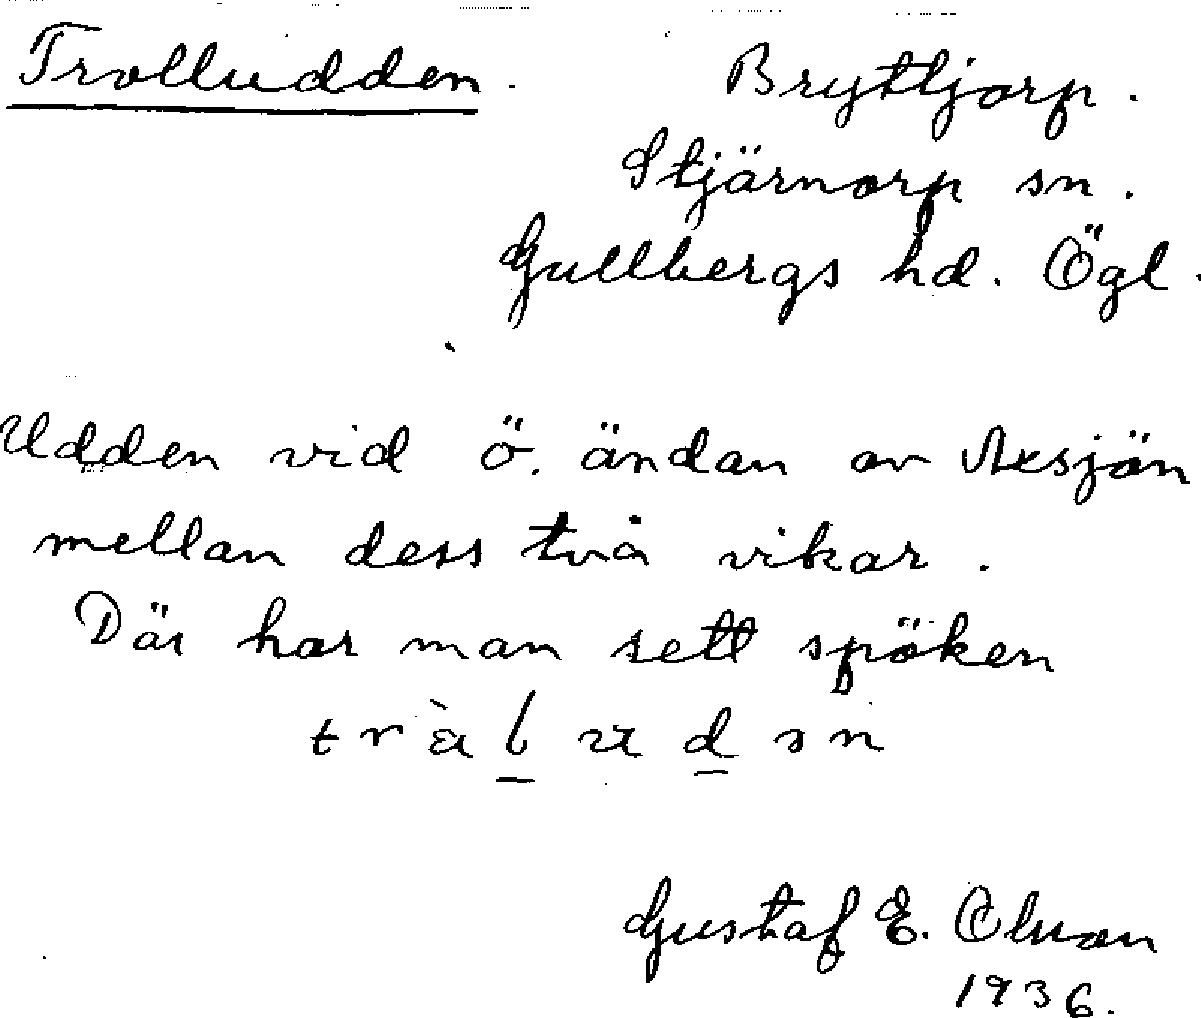 Trolludden. Bryttjorp.
Stjärnorp sn.
Gullbergs hd. Ögl.
Udden vid ö. ändan av Axsjön
mellan dess två vikar.
Där har man sett spöken
Gustaf E. Olson
1936.